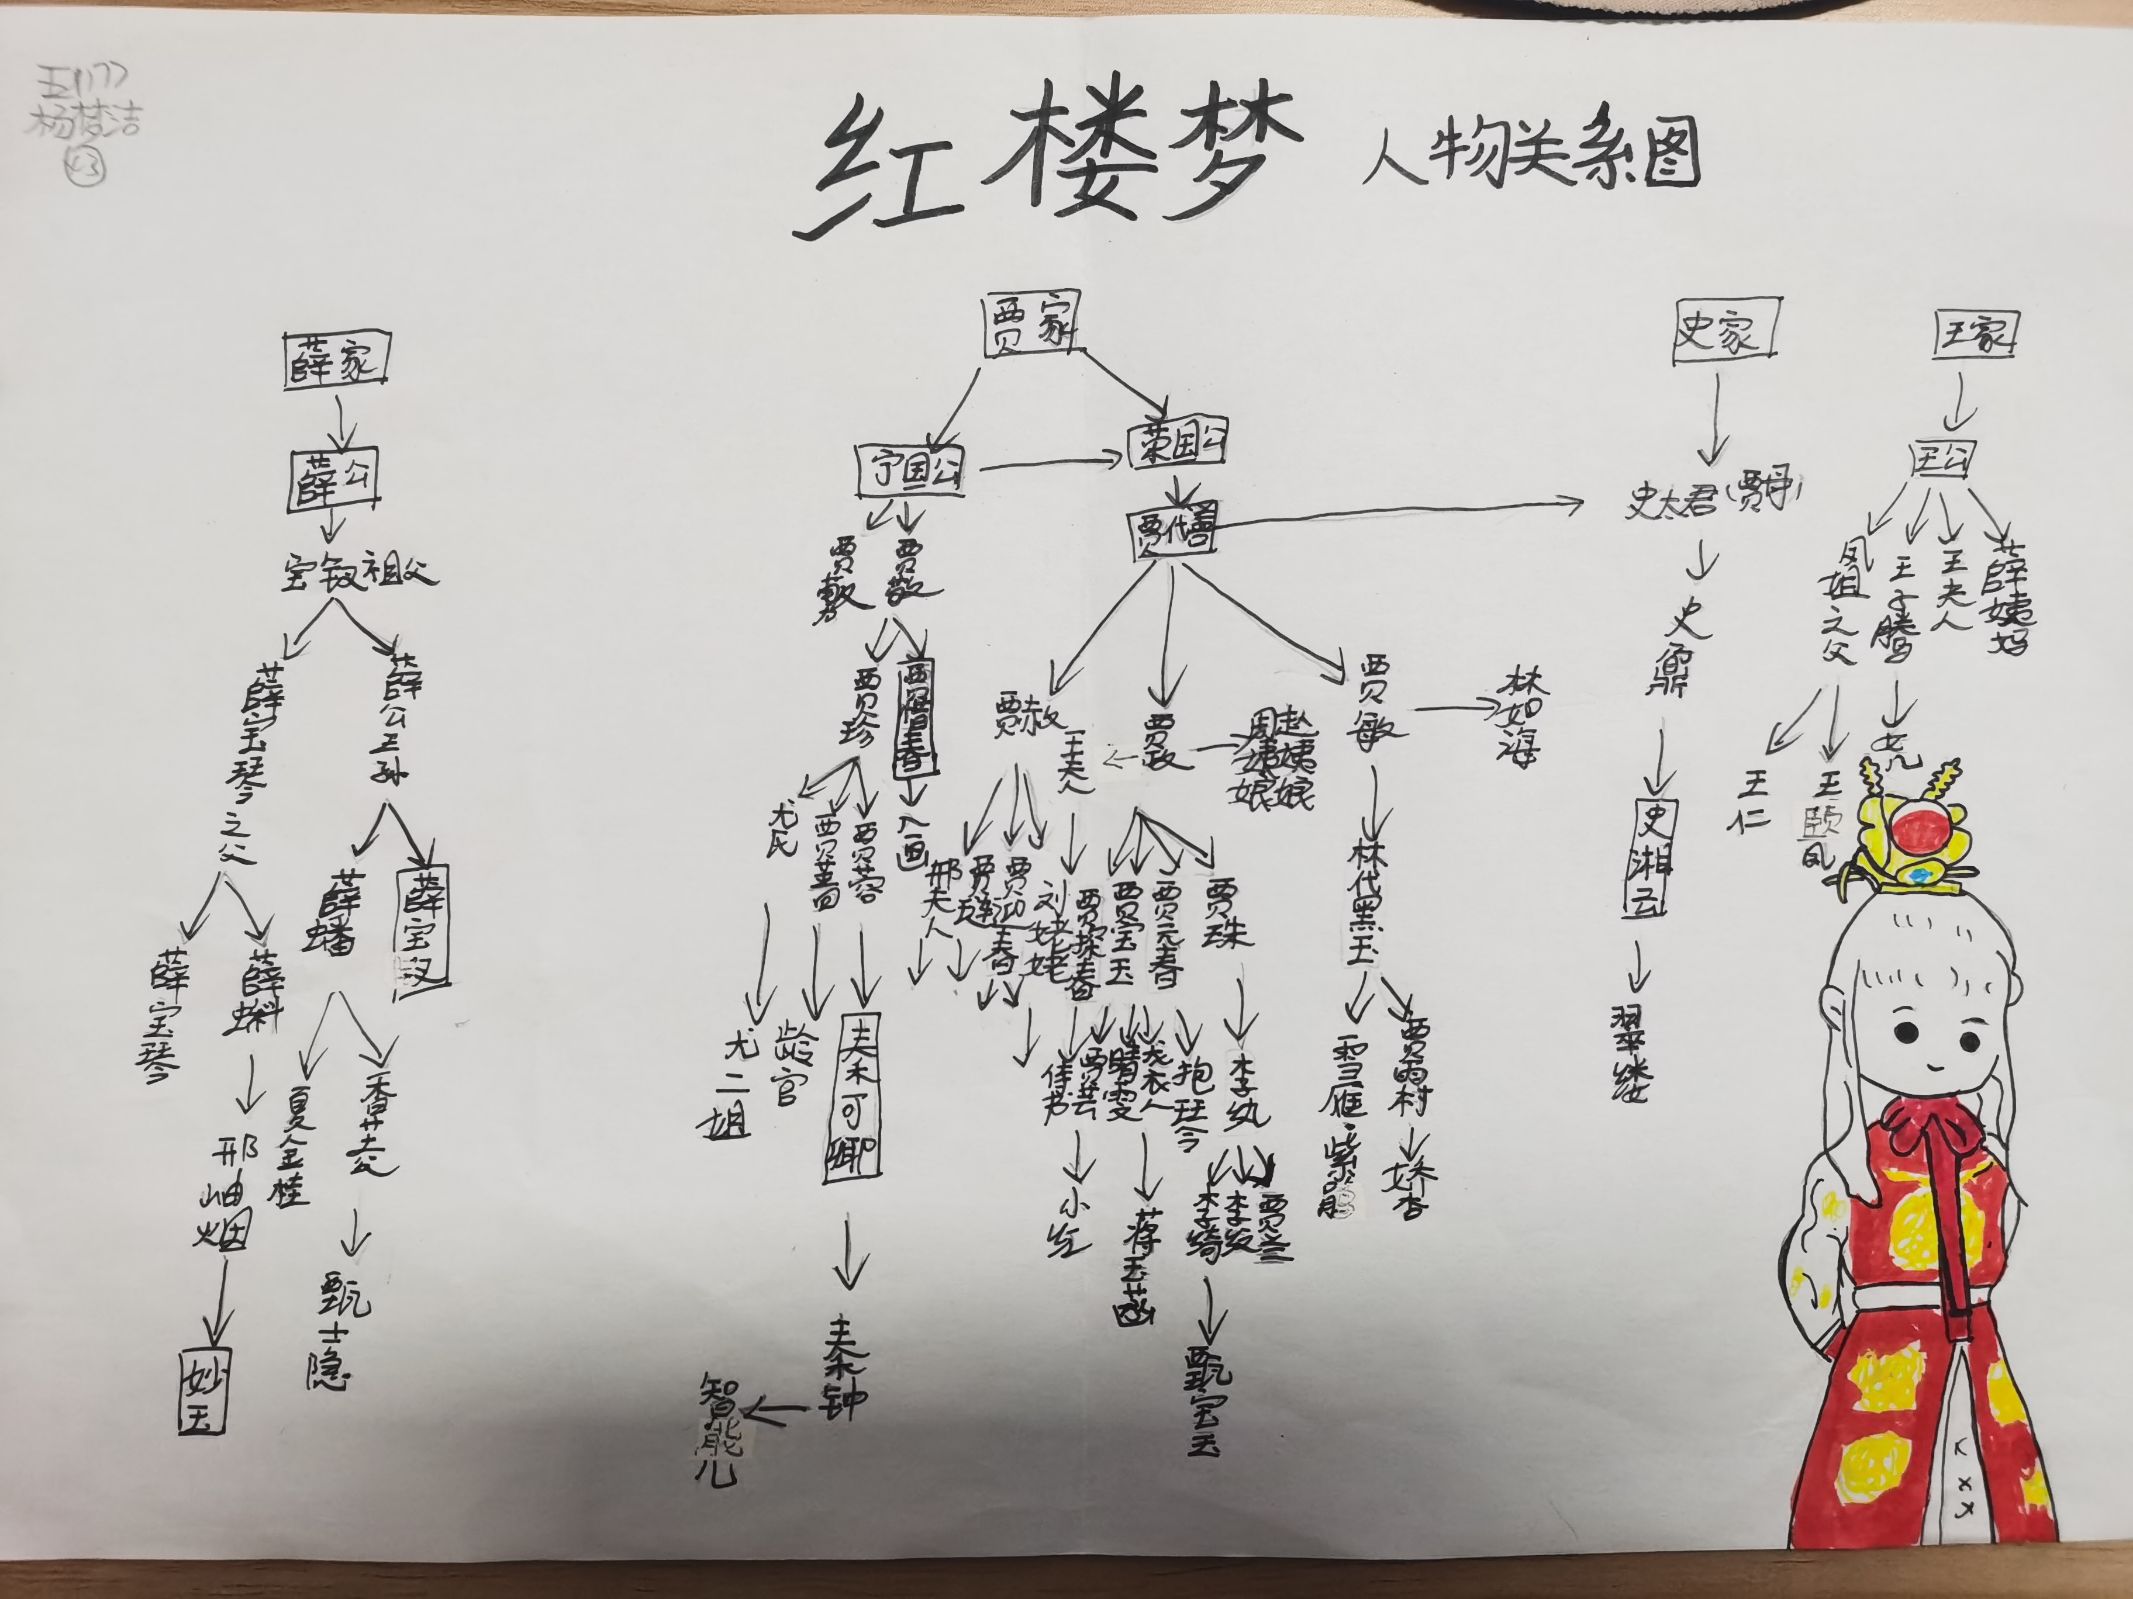 杨梦洁
43
红楼梦 人物关系图
薛家
薛公
宝钗祖父
薛宝琴之父
薛公三孙
薛蟠
薛宝钗
薛宝琴
薛蝌
夏金桂
香菱
邢岫烟
甄士隐
妙玉
贾家
宁国公
荣国公
贾代善
贾敷
贾敬
贾珍
贾惜春
尤氏
贾蔷
贾蓉
入画
尤二姐
龄官
秦可卿
秦钟
智能儿
贾赦
王夫人
贾政
周姨娘
赵姨娘
贾敏
林如海
邢夫人
贾琏
贾迎春
刘姥姥
贾探春
贾宝玉
贾元春
贾珠
林代黑玉
侍书
贾芸
晴雯
袭人
抱琴
李纨
雪雁
紫鹃
贾雨村
娇杏
小红
蒋玉菡
李绮
李纹
贾兰
甄宝玉
史家
史太君(贾母)
史鼐
史湘云
翠缕
王家
王公
凤姐之父
王子腾
王夫人
薛姨妈
王仁
王熙凤
女儿